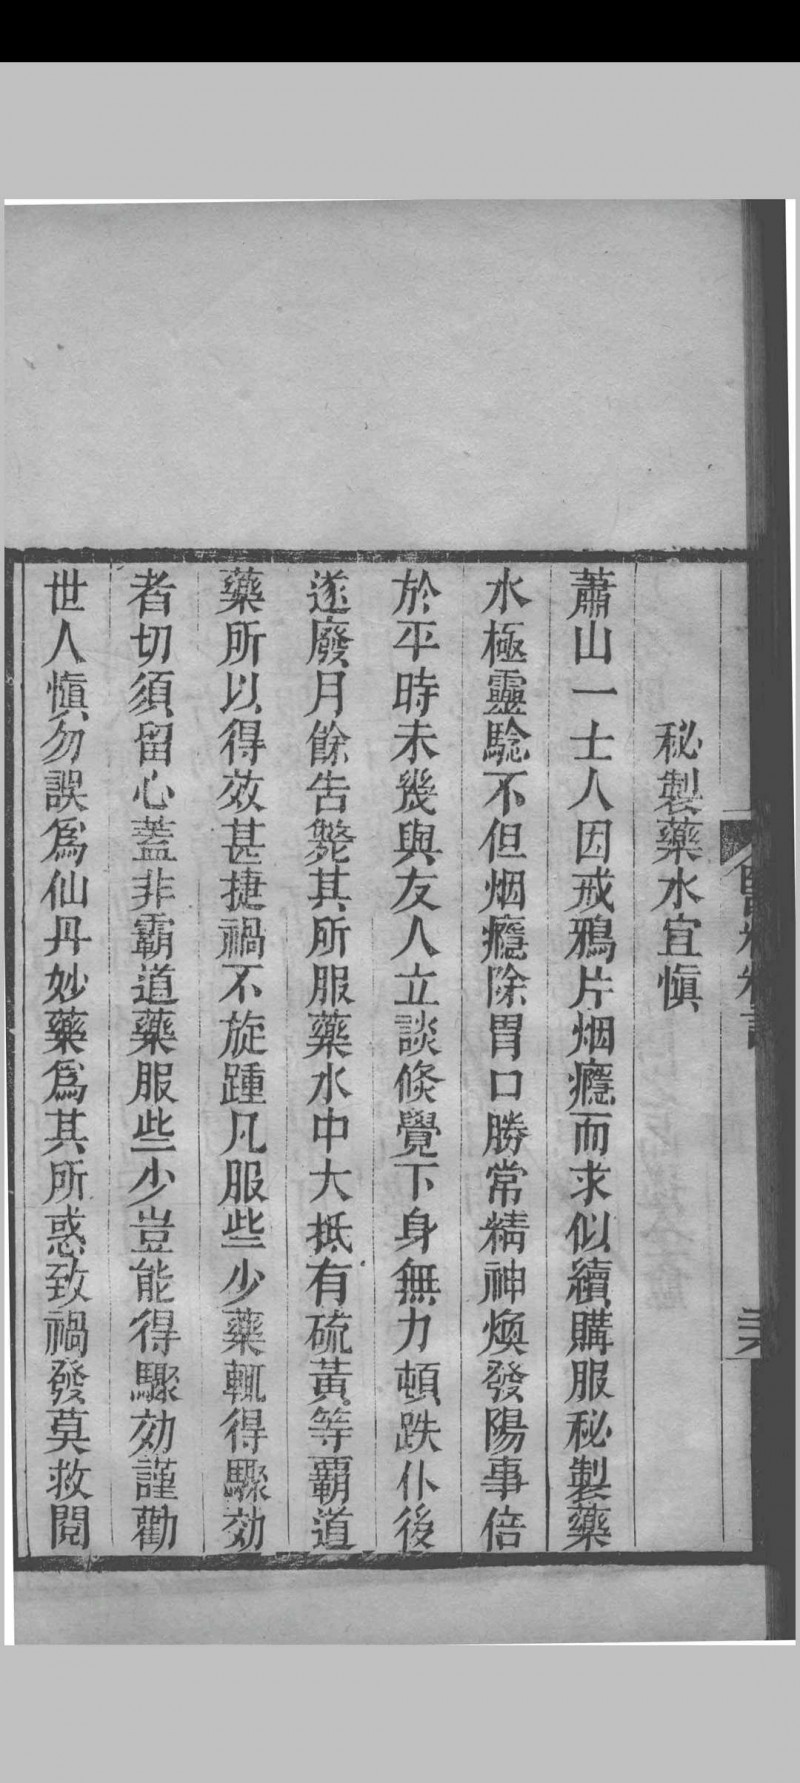 秘製藥水宜慎
蕭山一士人因戒鴉片烟癮而求似續購服秘製藥
水極靈騐不但烟癮除胃口勝常精神煥發陽事倍
於平時未幾與友人立談倐覺下身無力頓跌仆後
遂廢月餘告斃其所服藥水中大抵有硫黃等覇道
藥所以得效甚捷禍不旋踵凡服些少藥輒得驟効
者切須留心蓋非霸道藥服些少豈能得驟効謹勸
世人愼勿誤爲仙丹妙藥爲其所惑致禍發莫救閱